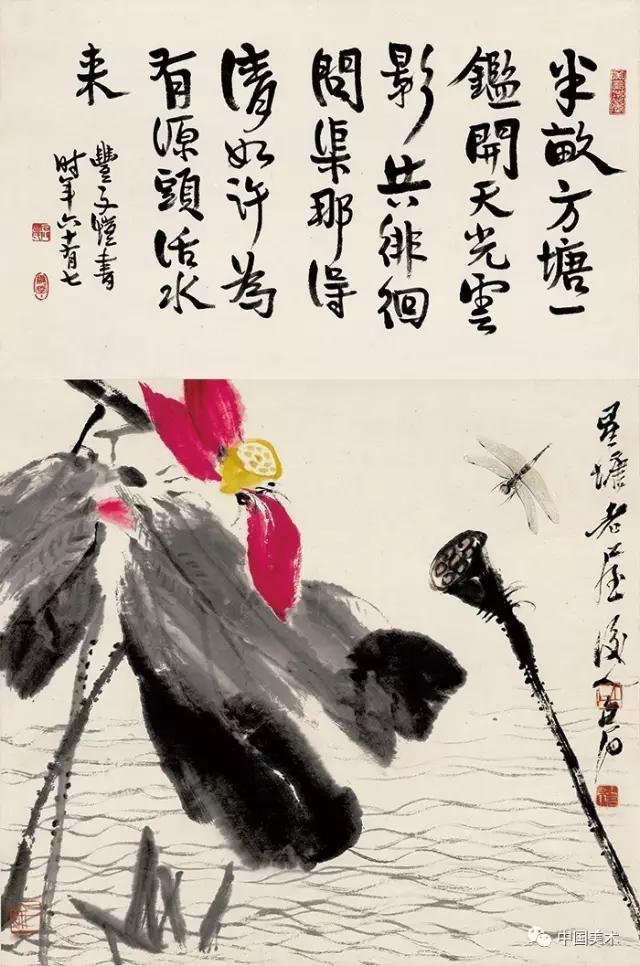 半畝方塘一
鑑開天光雲
影共徘徊
問渠那得
清如许為
有源頭活水
来
豐子愷書
时年六十有七
星塘老屋後人白石
中国美术